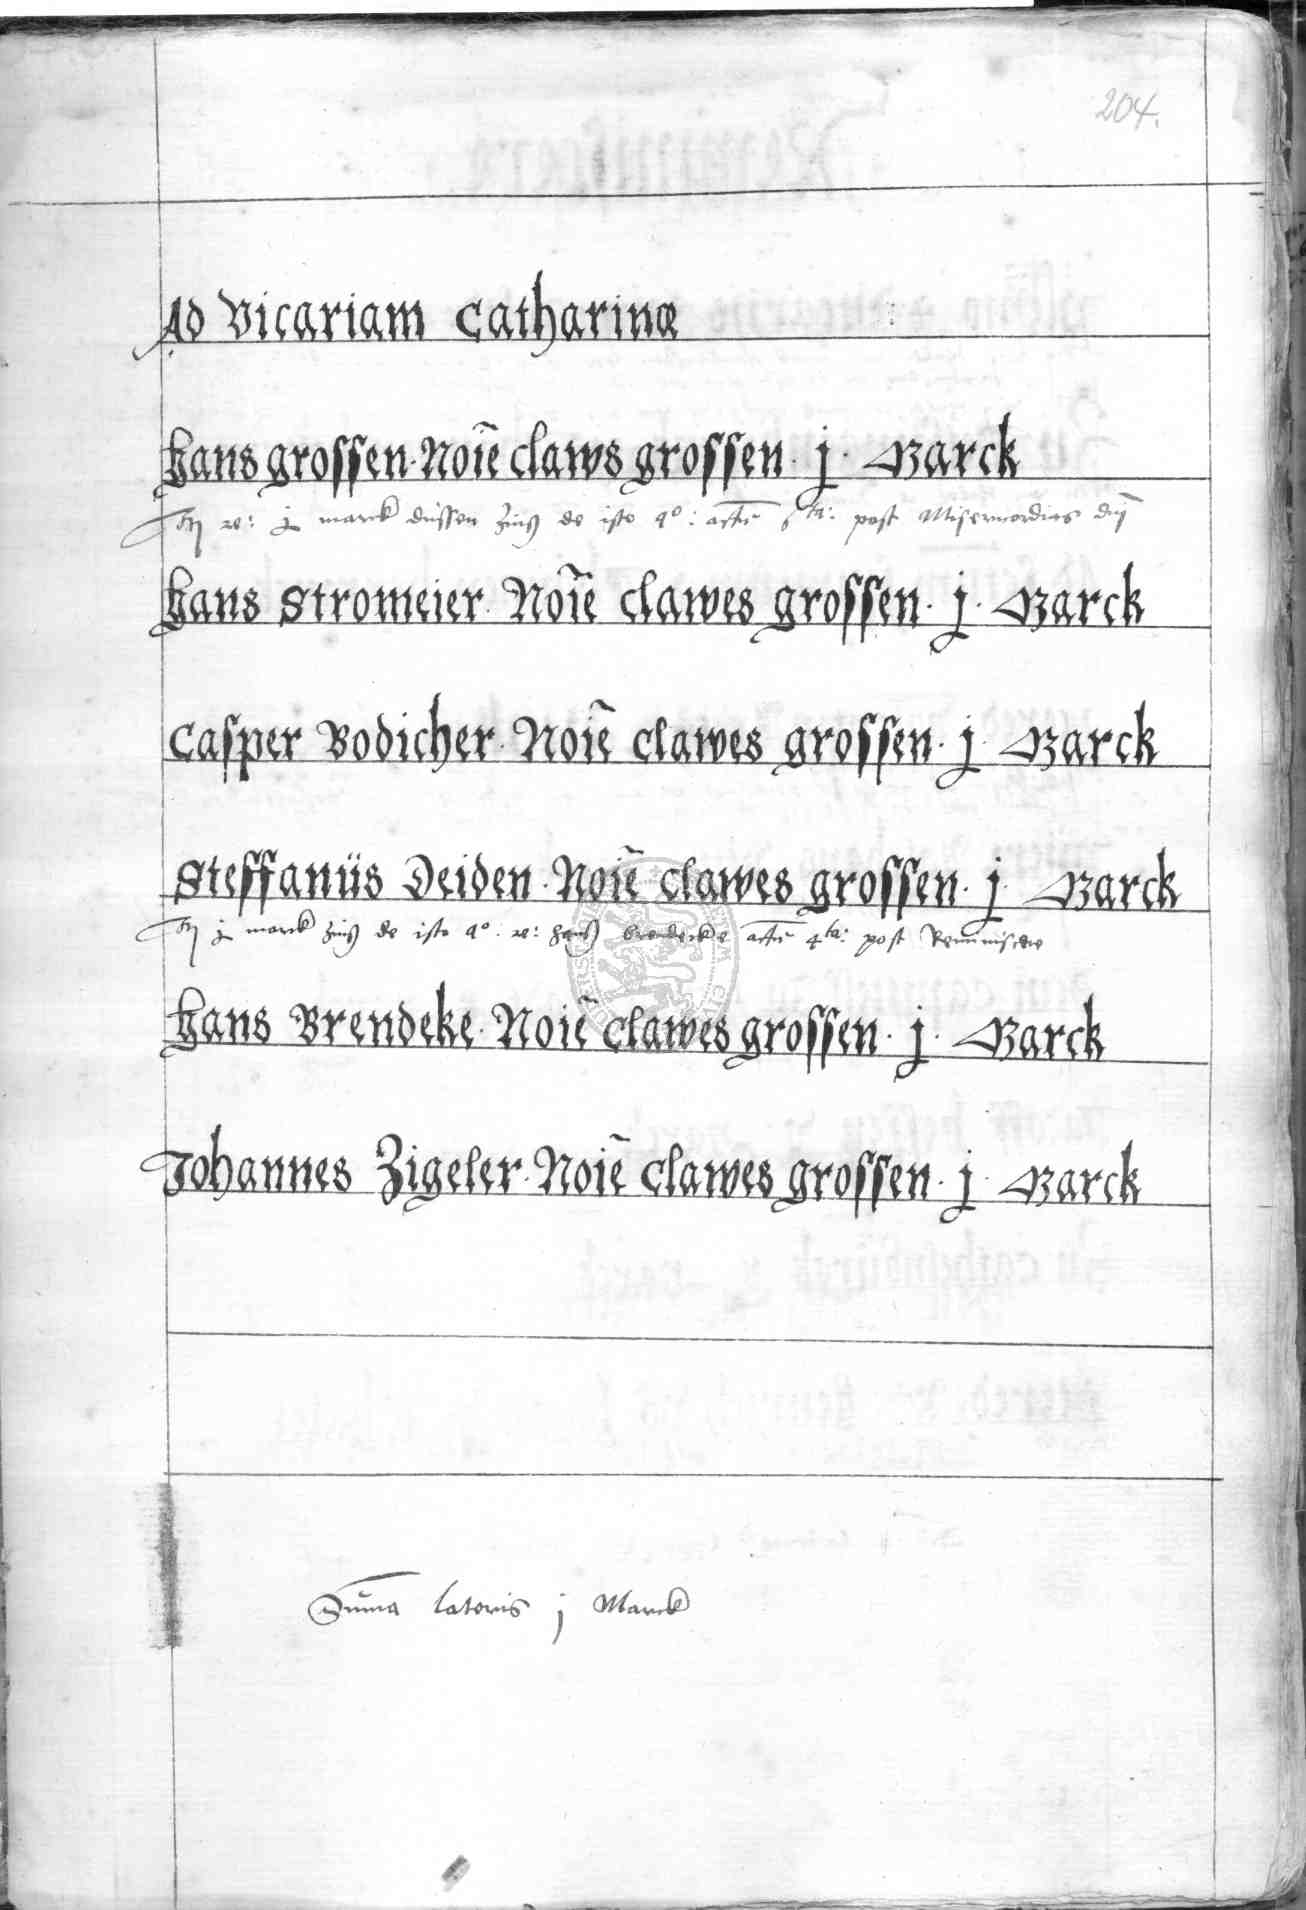 204.
Ad Vicariam Catharinæ
Hans grossen. Noīe claws grossen. j. Marck
marck dussen zinß de isto a°: actū post Misericordias dnj
Hans Stromeier. Noīe clawes grossen. j. Marck
Casper Bodicher. Noīe clawes grossen. j. Marck
Steffanüs Deiden. Noīe clawes grossen. j. Marck
j marck zinß de isto a°. hanß brendecke actū 4ta: post Reminiscere
Hans Brendeke. Noīe clawes grossen. j. Marck
Johannes Zigeler. Noīe clawes grossen. j. Marck
Suma lateris j Marck